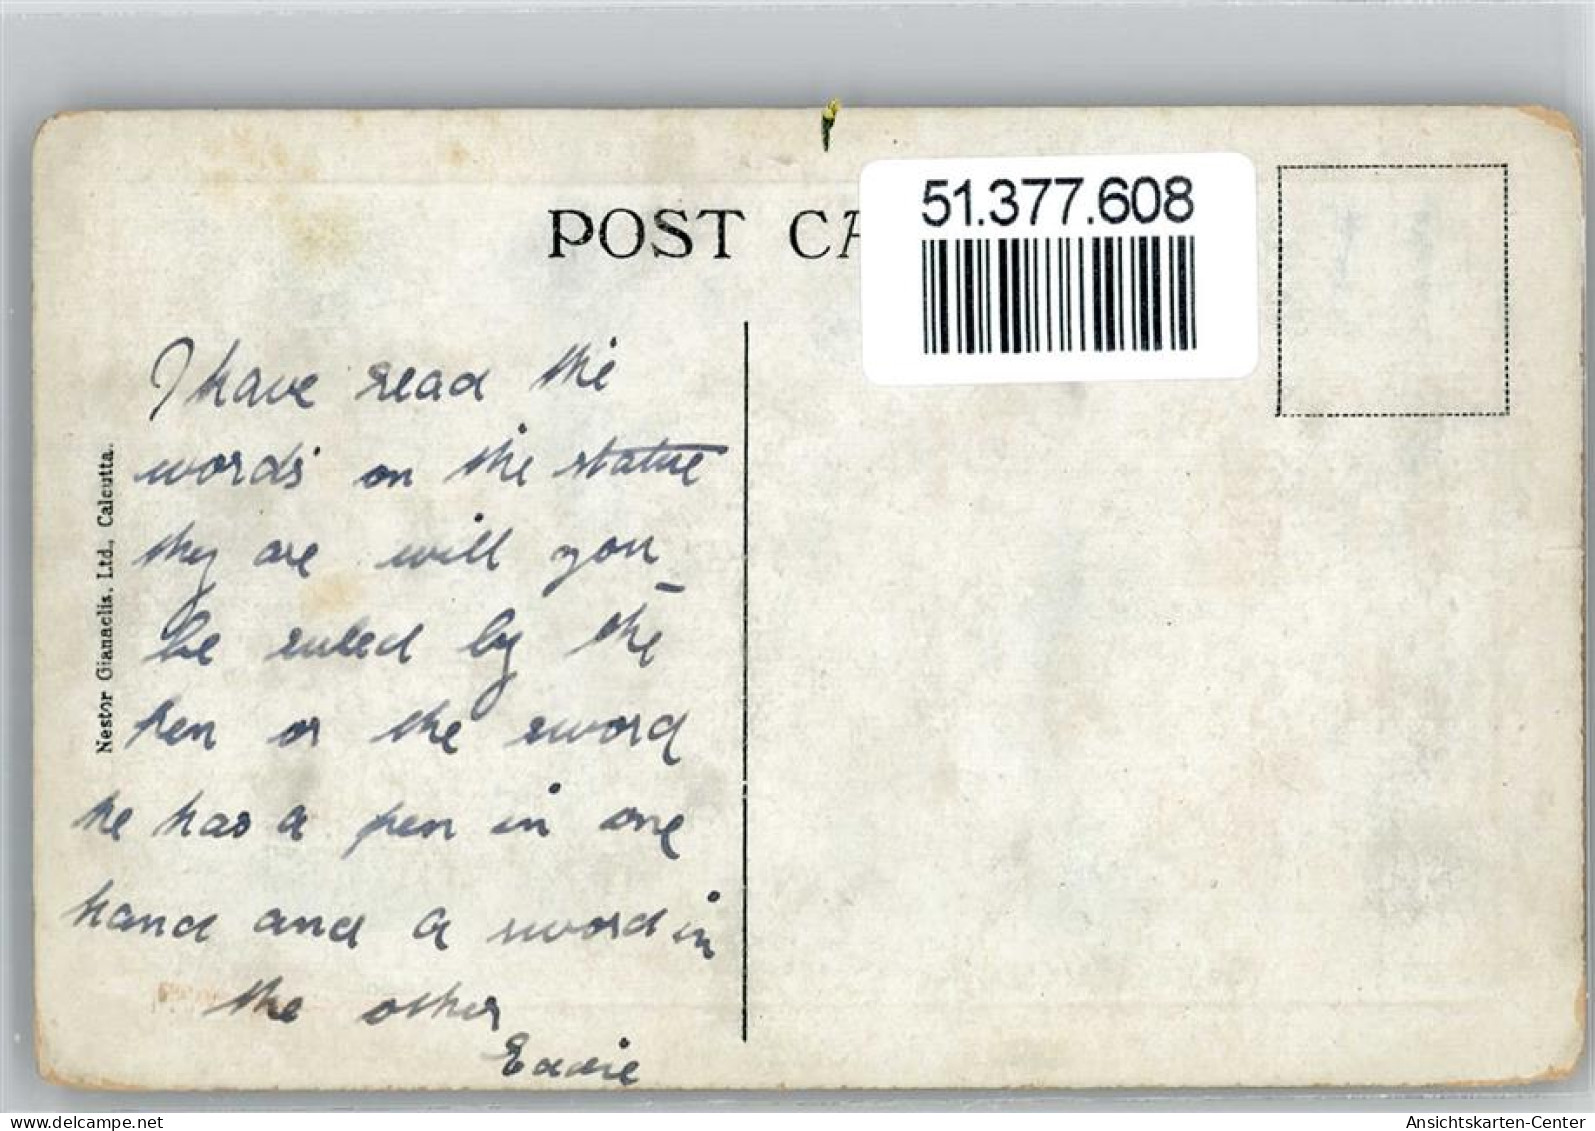 POST CA
51.377.608
I have read the
words on the statue
they are will you
be ruled by the
pen or the sword
he has a pen in one
hand and a sword in
the other
Eddie
Nestor Gianaclis, Ltd., Calcutta.
Ansichtskarten-Center